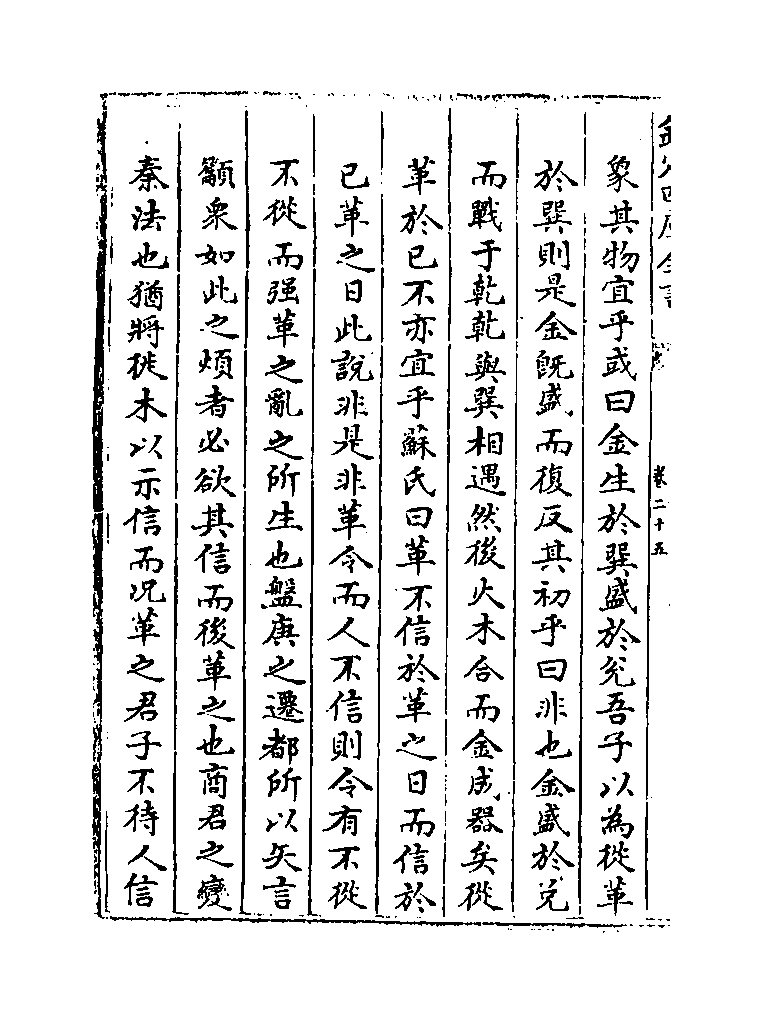 欽定四庫全書 卷二十五
象其物宜乎或曰金生於巽盛於兊吾子以為從革
於巽則是金旣盛而復反其初乎曰非也金盛於兊
而戰于乾乾與巽相遇然後火木合而金成器矣從
革於巳不亦宜乎蘇氏曰革不信於革之日而信於
已革之日此說非是非革令而人不信則令有不從
不從而强革之亂之所生也盤庚之遷都所以矢言
籲衆如此之煩者必欲其信而後革之也商君之變
秦法也猶將徙木以示信而况革之君子不待人信